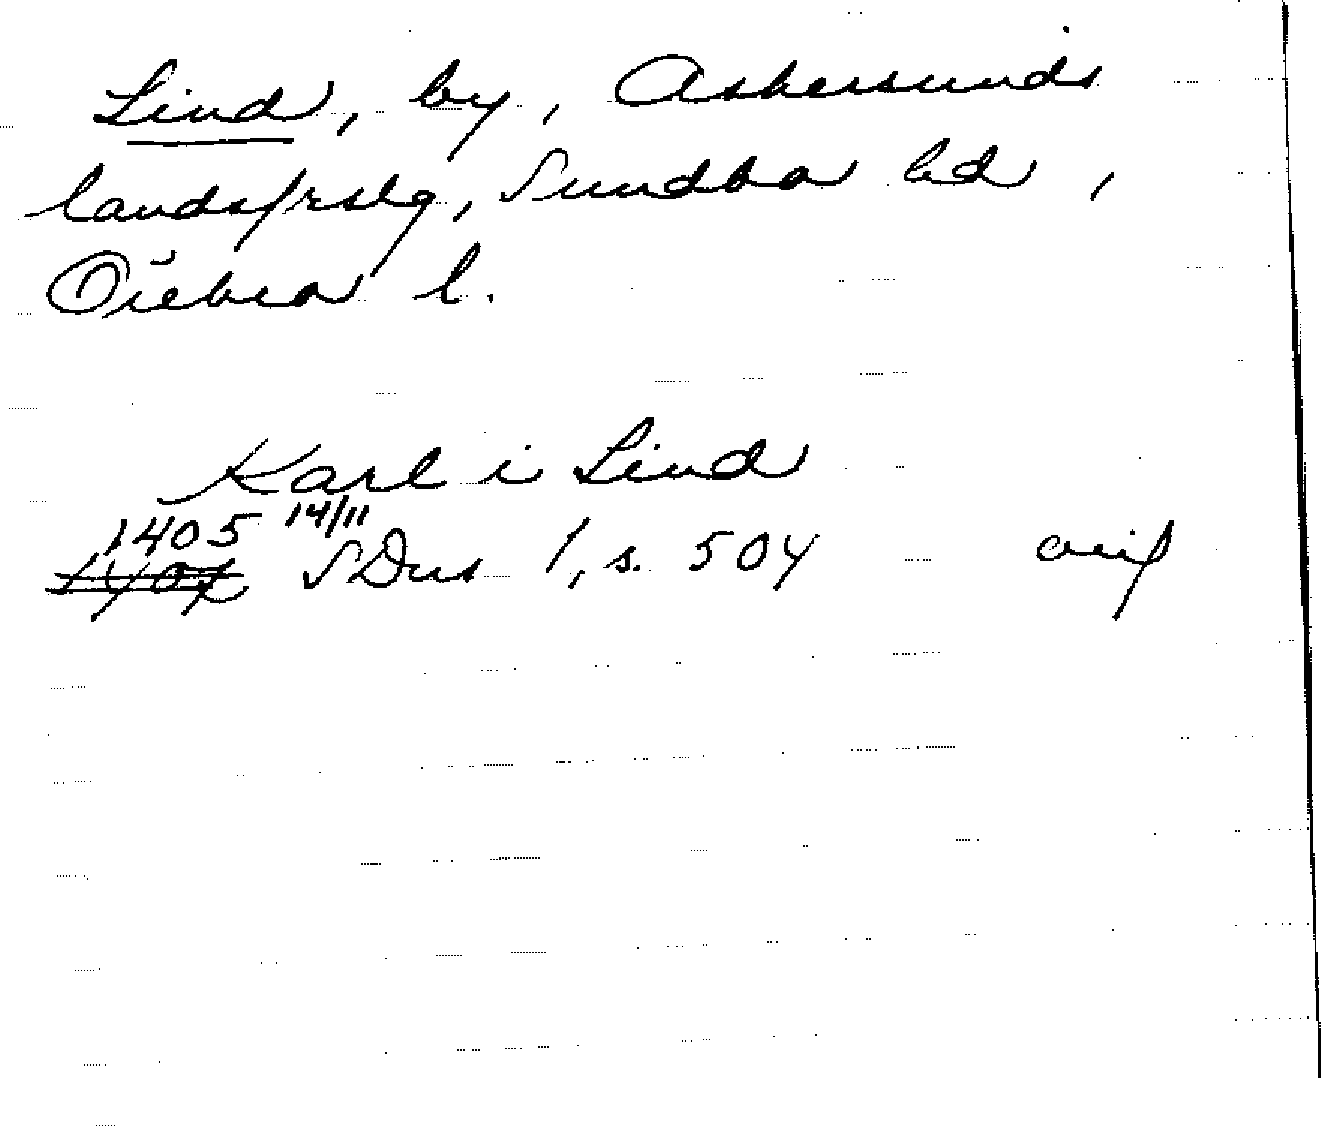 Lind, by, Askersunds
landsfrslg, Sundbo hd,
Örebro l.
Karl i Lind
1405 14/11
SDns 1, s. 504 avif